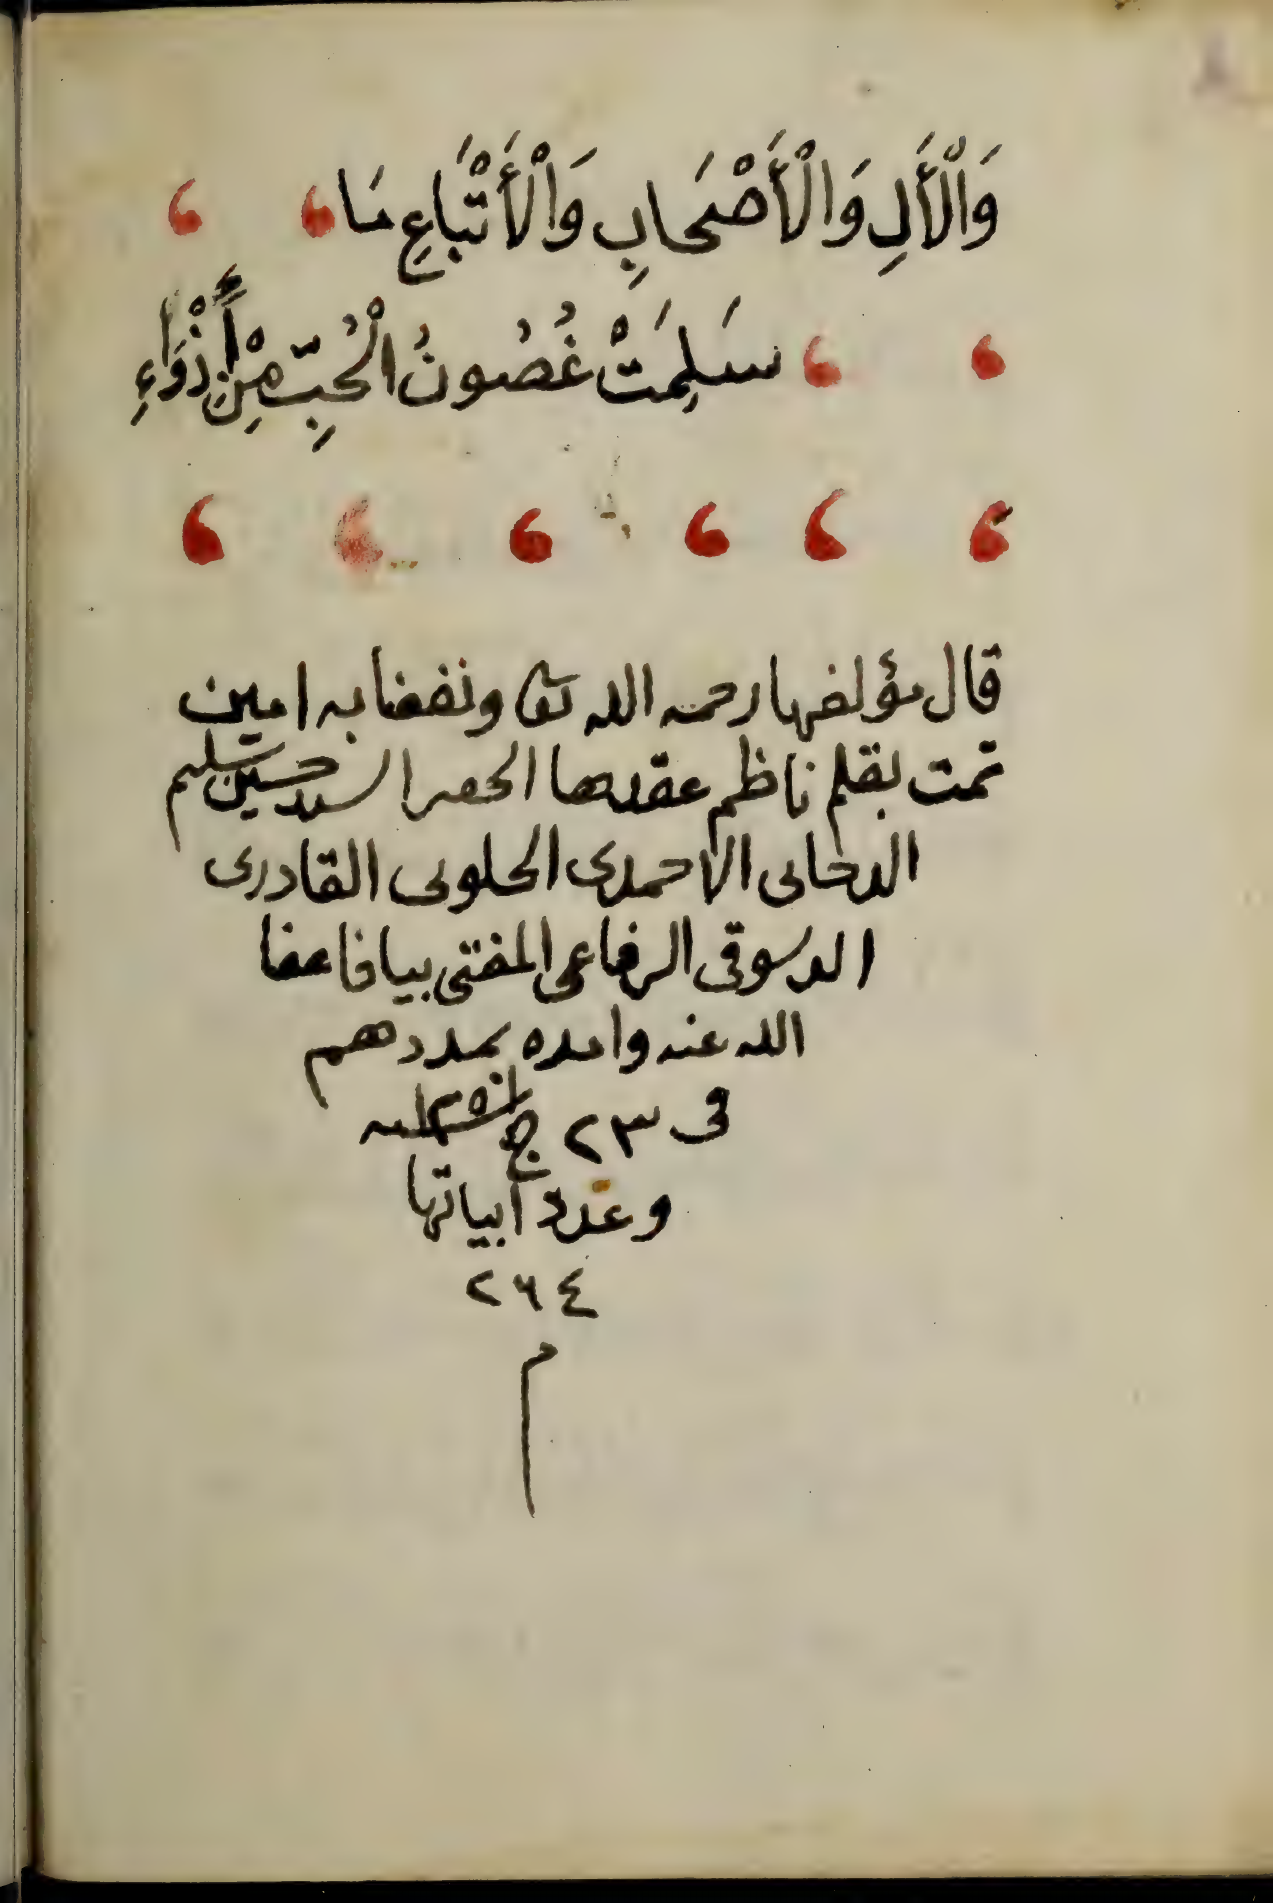 وَالْأَلِ وَالْأَصْحَابِ وَالْأَتْبَاعِ مَا
سَلِمَتْ غُصُونُ الْحُبِّ مِنْ إِذْوَاءِ
قال مؤلفها رحمه الله تعا ونفعنا به امين
تمت بقلم ناظم عقدها الحقير السيد حسين سليم
الدجانى الاحمدى الخلوتى القادرى
الدسوقى الرفاعى المفتى بيافا عفا
الله عنه وامده بمددهم
فى ٢٣ ج سنة
وعدد أبياتها
٢٦٤
م